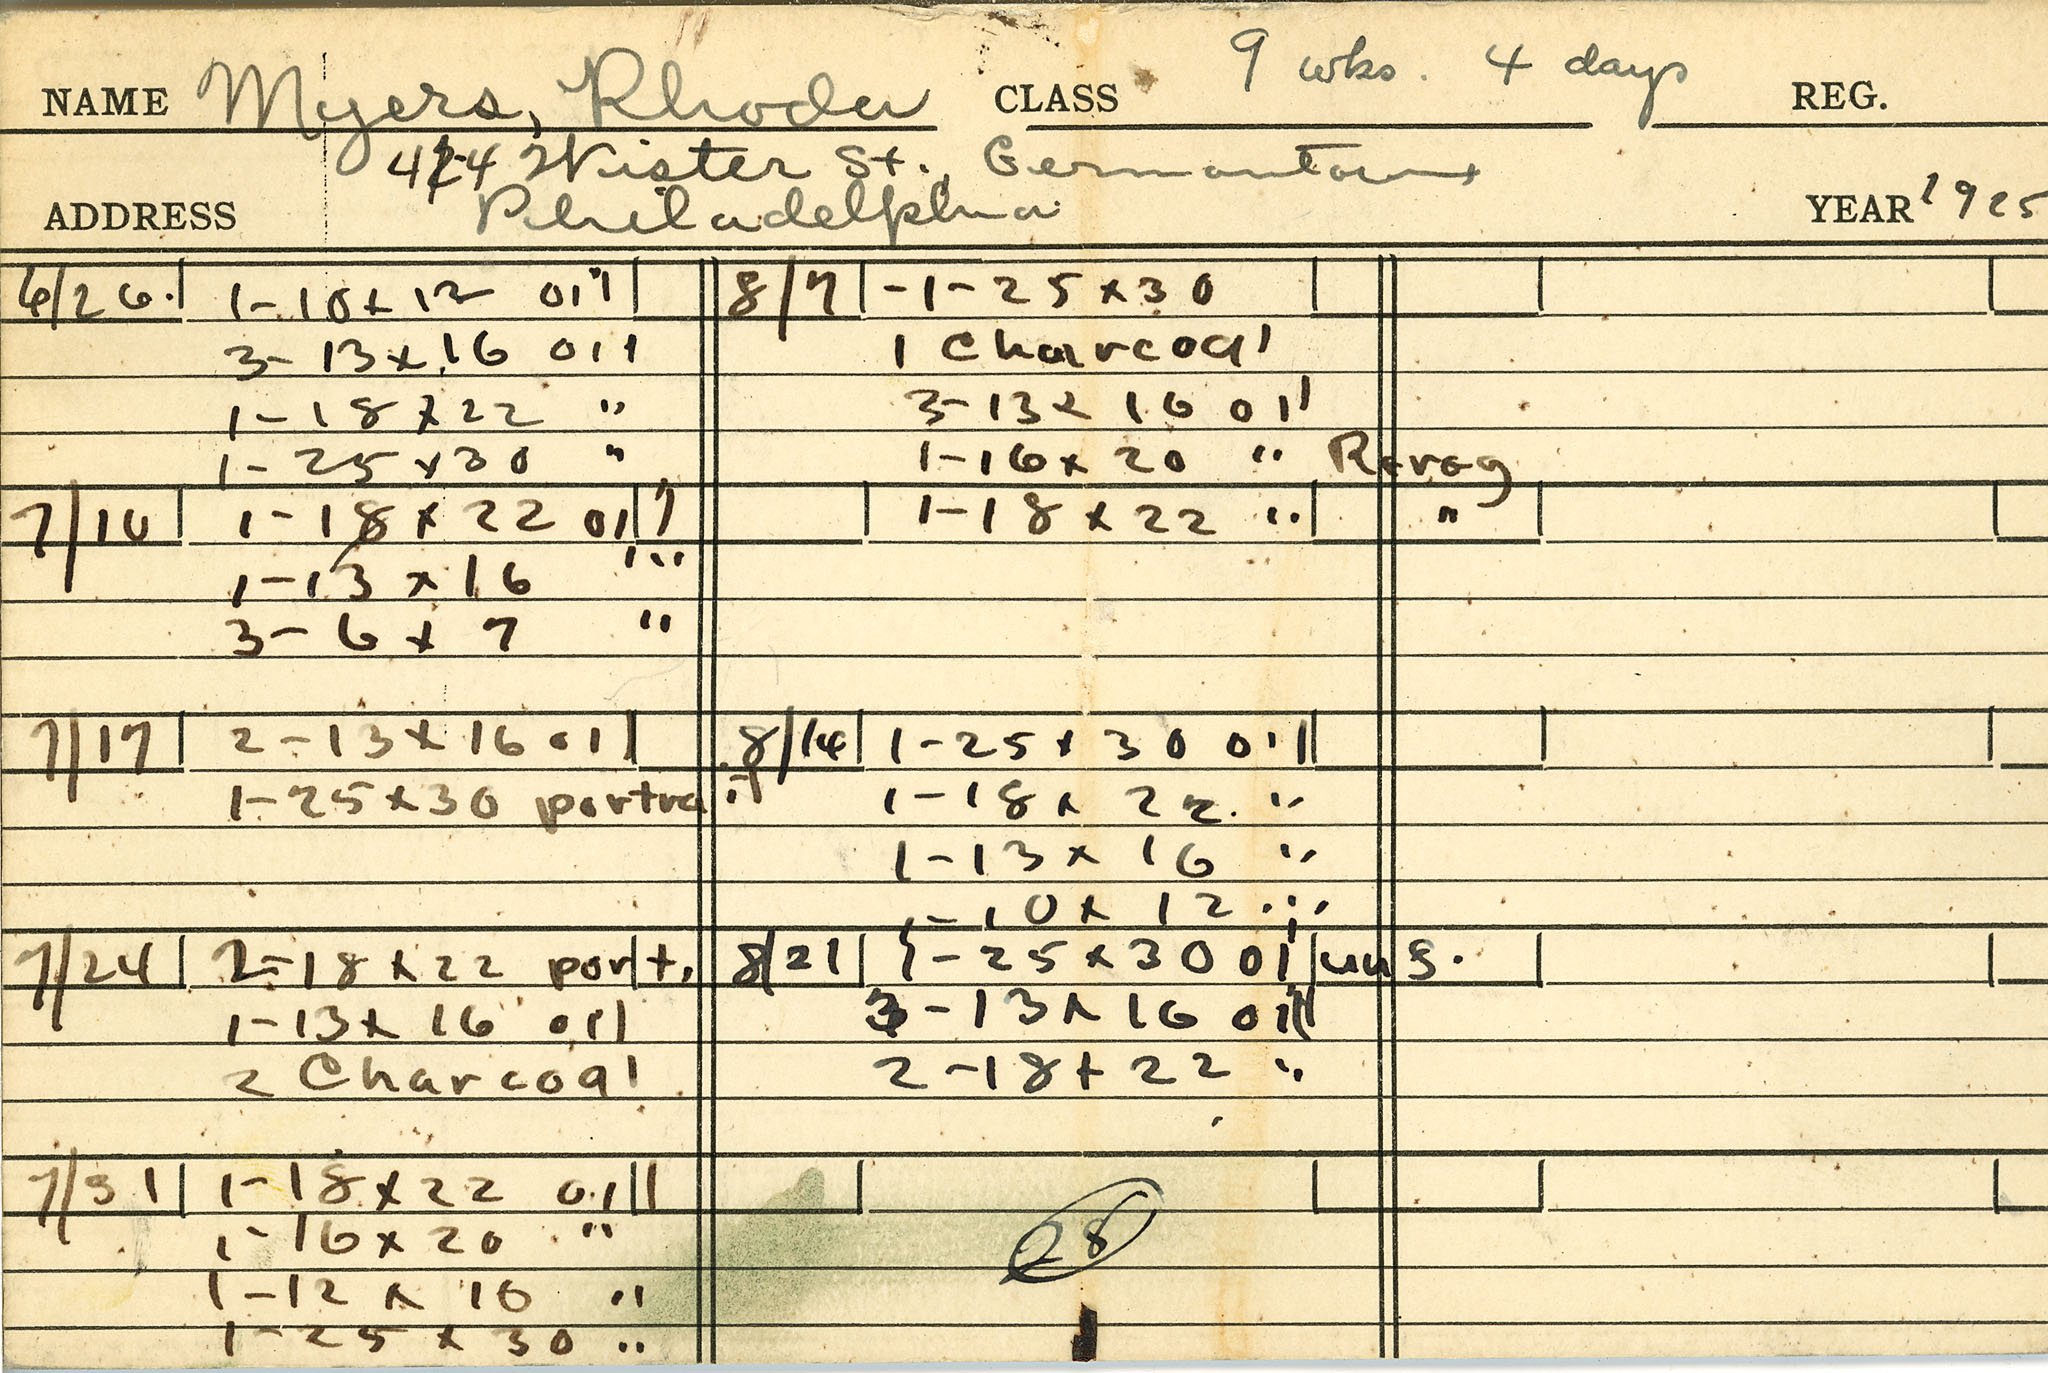 NAME Myers, Rhoda CLASS 9 wks. 4 days REG.
Wister St., Germantown
ADDRESS Philadelphia YEAR 1925
6/26. 1-10x12 oil
3-13x16 oil
1-18x22 "
1-25x30 "
7/10 1-18x22 oil
1-13x16 "
3-6x7 "
7/17 2-13x16 oil
1-25x30 portrait
7/24 2-18x22 port.
1-13x16 oil
2 Charcoal
7/31 1-18x22 oil
1-16x20 "
1-12x16 "
1-25x30 "
8/7 -1-25x30
1 Charcoal
3-13x16 oil
1-16x20 "
1-18x22 " "
8/14 1-25x30 oil
1-18x22. "
1-13x16 "
1-10x12 "
8/21 1-25x30 oil
3-13x16 oil
2-18x22 "
28